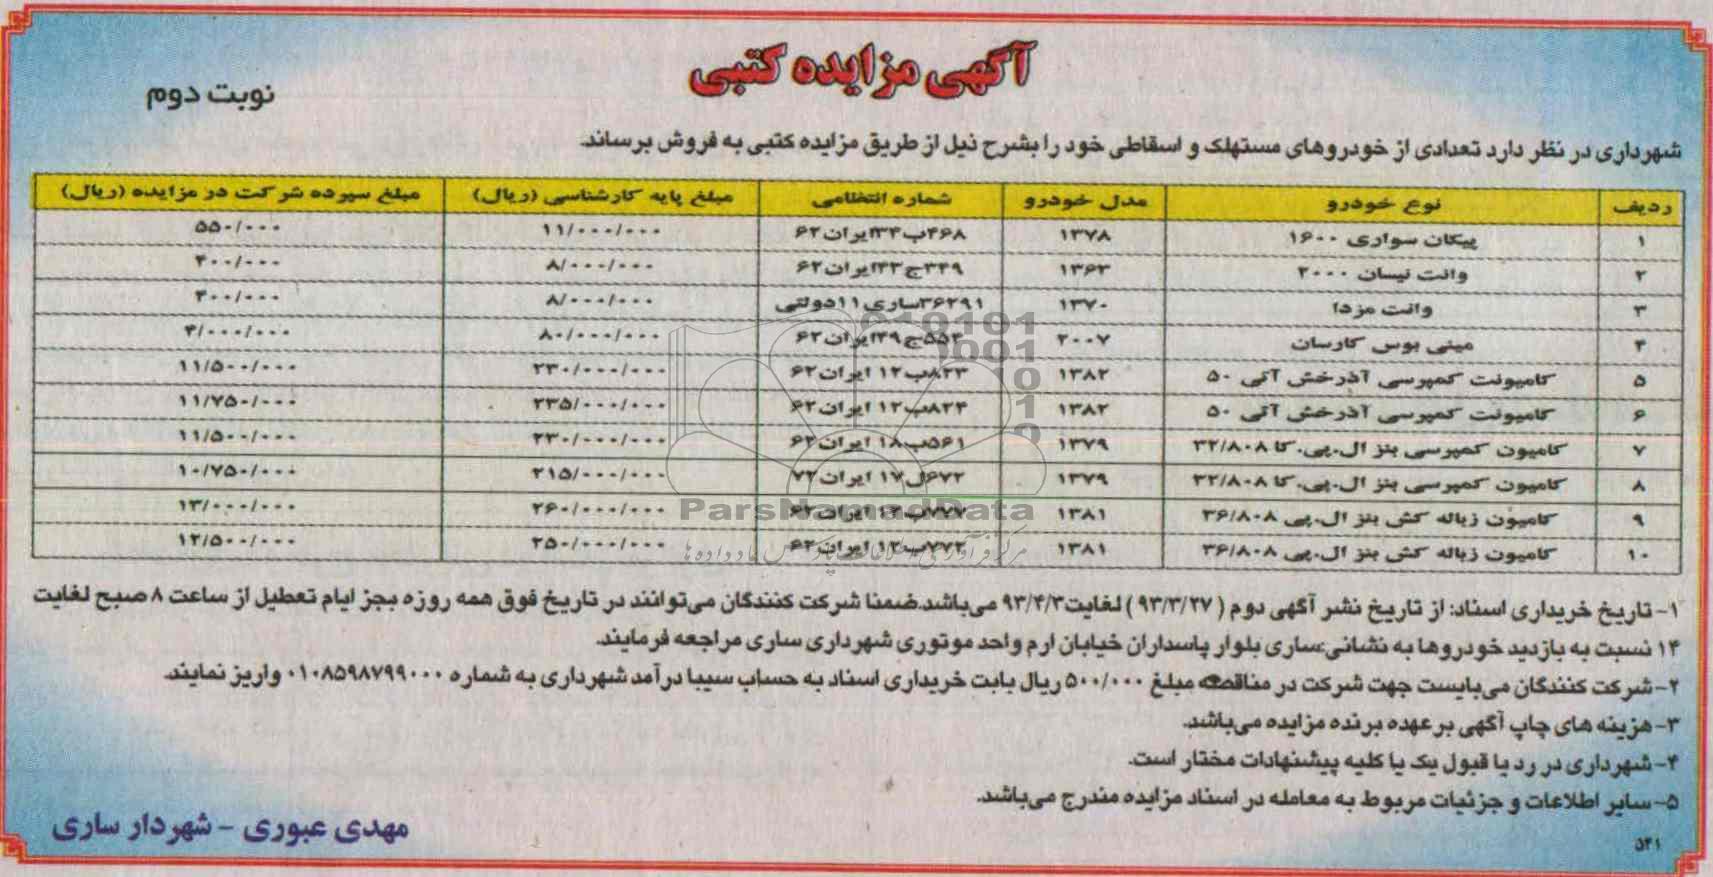 آگهی مزایده کتبی
نوبت دوم
شهرداری در نظر دارد تعدادی از خودروهای مستهلک و اسقاطی خود را بشرح ذیل از طریق مزایده کتبی به فروش برساند.
ردیف نوع خودرو مدل خودرو شماره انتظامی مبلغ پایه کارشناسی (ریال) مبلغ سپرده شرکت در مزایده (ریال)
۱ پیکان سواری ۱۶۰۰ ۱۳۷۸ ۴۶۸ب۳۴ایران۶۲ ۱۱/۰۰۰/۰۰۰ ۵۵۰/۰۰۰
۲ وانت نیسان ۲۰۰۰ ۱۳۶۳ ۳۴۹ج۴۳ایران۶۲ ۸/۰۰۰/۰۰۰ ۴۰۰/۰۰۰
۳ وانت مزدا ۱۳۷۰ ۳۶۲۹۱ساری۱۱دولتی ۸/۰۰۰/۰۰۰ ۴۰۰/۰۰۰
۴ مینی بوس کارسان ۲۰۰۷ ۵۵۲ج۴۹ایران۶۲ ۸۰/۰۰۰/۰۰۰ ۴/۰۰۰/۰۰۰
۵ کامیونت کمپرسی آذرخش آتی ۵۰ ۱۳۸۲ ۸۲۳ب۱۲ ایران۶۲ ۲۳۰/۰۰۰/۰۰۰ ۱۱/۵۰۰/۰۰۰
۶ کامیونت کمپرسی آذرخش آتی ۵۰ ۱۳۸۲ ۸۲۴ب۱۲ ایران۶۲ ۲۳۵/۰۰۰/۰۰۰ ۱۱/۷۵۰/۰۰۰
۷ کامیون کمپرسی بنز ال.پی.کا ۳۲/۸۰۸ ۱۳۷۹ ۵۶۱ب۱۸ ایران۶۲ ۲۳۰/۰۰۰/۰۰۰ ۱۱/۵۰۰/۰۰۰
۸ کامیون کمپرسی بنز ال.پی.کا ۳۲/۸۰۸ ۱۳۷۹ ۶۷۲ل۱۷ ایران۷۲ ۲۱۵/۰۰۰/۰۰۰ ۱۰/۷۵۰/۰۰۰
۹ کامیون زباله کش بنز ال.پی ۳۶/۸۰۸ ۱۳۸۱ ۷۷۷ب۱۲ ایران۶۲ ۲۶۰/۰۰۰/۰۰۰ ۱۳/۰۰۰/۰۰۰
۱۰ کامیون زباله کش بنز ال.پی ۳۶/۸۰۸ ۱۳۸۱ ۷۷۲ب۱۲ ایران۶۲ ۲۵۰/۰۰۰/۰۰۰ ۱۲/۵۰۰/۰۰۰
ParsNamadData
۱- تاریخ خریداری اسناد: از تاریخ نشر آگهی دوم ( ۹۳/۳/۲۷ ) لغایت۹۳/۴/۳ می‌باشد.ضمنا شرکت کنندگان می‌توانند در تاریخ فوق همه روزه بجز ایام تعطیل از ساعت ۸ صبح لغایت
۱۴ نسبت به بازدید خودروها به نشانی:ساری بلوار پاسداران خیابان ارم واحد موتوری شهرداری ساری مراجعه فرمایند.
۲- شرکت کنندگان می‌بایست جهت شرکت در مناقصه مبلغ ۵۰۰/۰۰۰ ریال بابت خریداری اسناد به حساب سیبا درآمد شهرداری به شماره ۰۱۰۸۵۹۸۷۹۹۰۰۰ واریز نمایند.
۳- هزینه های چاپ آگهی بر عهده برنده مزایده می‌باشد.
۴- شهرداری در رد یا قبول یک یا کلیه پیشنهادات مختار است.
۵- سایر اطلاعات و جزئیات مربوط به معامله در اسناد مزایده مندرج می‌باشد.
مهدی عبوری - شهردار ساری
۵۴۱